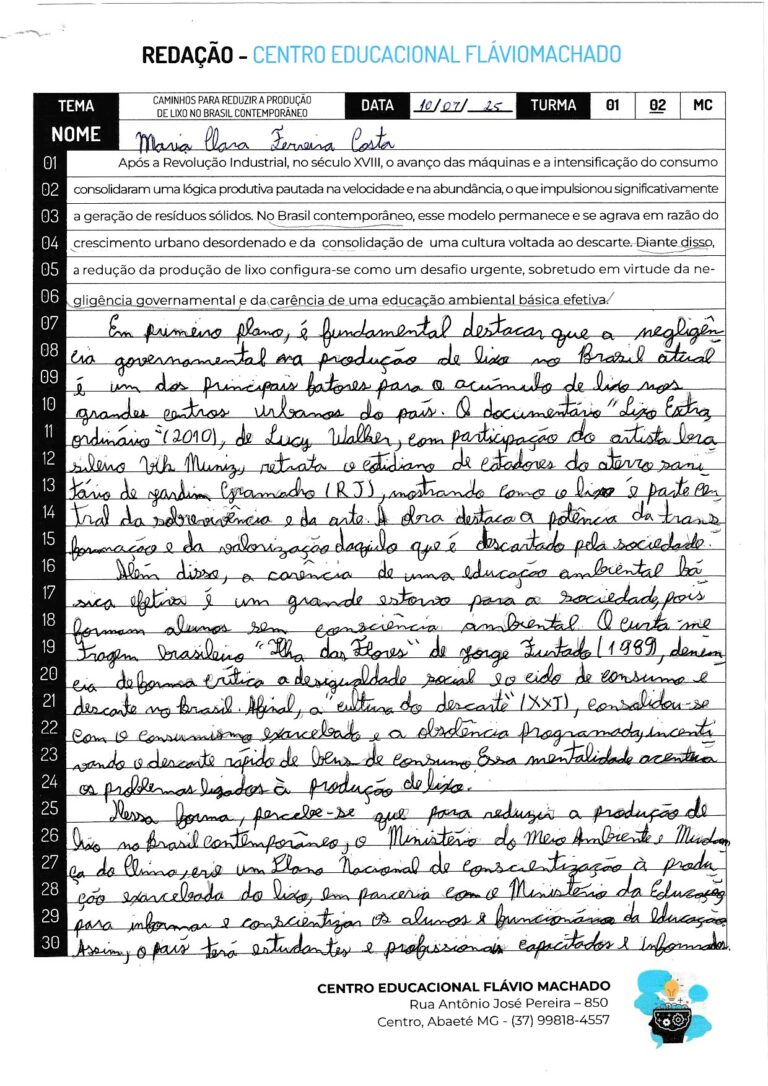 REDAÇÃO - CENTRO EDUCACIONAL FLÁVIOMACHADO
TEMA CAMINHOS PARA REDUZIR A PRODUÇÃO DE LIXO NO BRASIL CONTEMPORÂNEO DATA 10/07/25 TURMA 01 02 MC
NOME Maria Clara Ferreira Costa
01 Após a Revolução Industrial, no século XVIII, o avanço das máquinas e a intensificação do consumo
02 consolidaram uma lógica produtiva pautada na velocidade e na abundância, o que impulsionou significativamente
03 a geração de resíduos sólidos. No Brasil contemporâneo, esse modelo permanece e se agrava em razão do
04 crescimento urbano desordenado e da consolidação de uma cultura voltada ao descarte. Diante disso,
05 a redução da produção de lixo configura-se como um desafio urgente, sobretudo em virtude da ne-
06 gligência governamental e da carência de uma educação ambiental básica efetiva.
07 Em primeiro plano, é fundamental destacar que a negligên
08 cia governamental na produção de lixo no Brasil atual
09 é um dos principais fatores para o acúmulo de lixo nos
10 grandes centros urbanos do país. O documentário "Lixo Extra
11 ordinário" (2010), de Lucy Walker, com participação do artista bra
12 sileiro Vik Muniz, retrata o cotidiano de catadores do aterro sani
13 tário de Jardim Gramacho (RJ), mostrando como o lixo é parte cen
14 tral da sobrevivência e da arte. A obra destaca a potência da trans
15 formação e da valorização daquilo que é descartado pela sociedade.
16 Além disso, a carência de uma educação ambiental bá
17 sica efetiva é um grande estorvo para a sociedade, pois
18 formam alunos sem consciência ambiental. O curta-me
19 tragem brasileiro "Ilha das Flores" de Jorge Furtado (1989), denún
20 cia de forma crítica a desigualdade social e o ciclo de consumo e
21 descarte no Brasil. Afinal, a "cultura do descarte" (XXI), consolidou-se
22 com o consumismo exarcebado e a obsolência programada, incenti
23 vando o descarte rápido de bens de consumo. Essa mentalidade acentua
24 os problemas ligados à produção de lixo.
25 Dessa forma, percebe-se que para reduzir a produção de
26 lixo no Brasil contemporâneo, o Ministério do Meio Ambiente e Mudan
27 ça do Clima, crie um Plano Nacional de conscientização à produ
28 ção exarcebada do lixo, em parceria com o Ministério da Educação
29 para informar e conscientizar os alunos e funcionários da educação.
30 Assim, o país terá estudantes e profissionais capacitados e informados.
CENTRO EDUCACIONAL FLÁVIO MACHADO
Rua Antônio José Pereira – 850
Centro, Abaeté MG - (37) 99818-4557